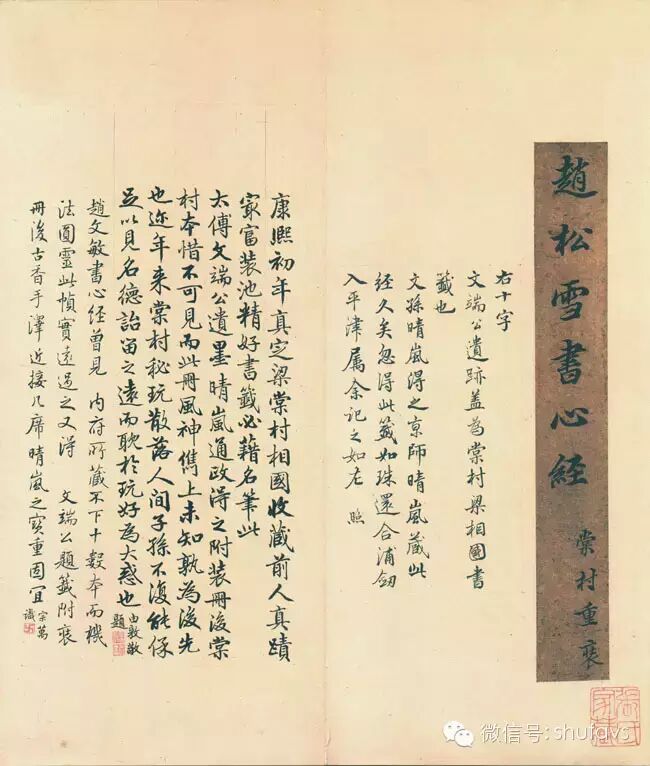 趙松雪書心經
棠村重裝
右十字
文端公遺跡蓋為棠村梁相國書
籤也
文孫晴嵐得之京師晴嵐藏此
經久矣忽得此籤如珠還合浦劍
入平津屬余記之如左 照
康熙初年真定梁棠村相國收藏前人真蹟
寂富裝池精好書籤必藉名筆此
太傅文端公遺墨晴嵐通政得之附裝冊後棠
村本惜不可見而此冊風神儁上未知孰為後先
也近年来棠村秘玩散落人間子孫不復能保
足以見名德詒留之遠而耽於玩好為大惑也 由敦敬
題
趙文敏書心經曾見 內府所藏不下十數本而機
法圓靈此幀實遠過之又得 文端公題籤附裝
冊後古香手澤近接几席晴嵐之寶重固宜 宗萬
識
微信号: shufgvs